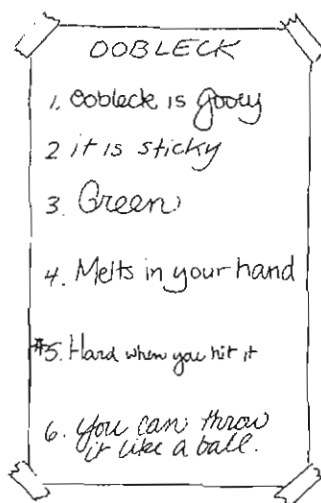 OOBLECK
1. Oobleck is gooey
2 it is sticky
3. Green
4. Melts in your hand
#5. Hard when you hit it
6. You can throw
it like a ball.